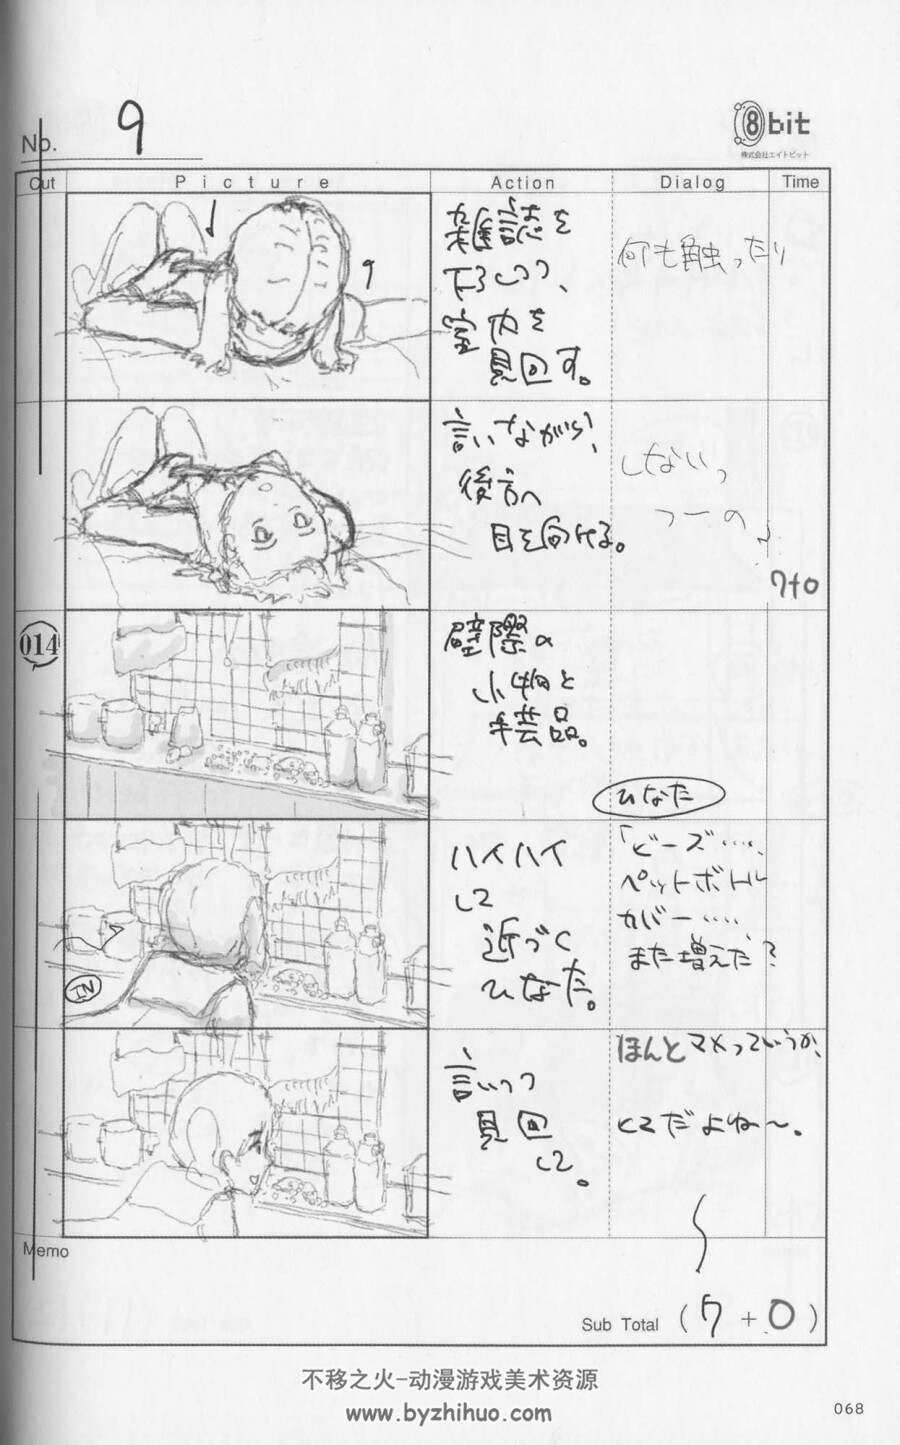 No. 9
8bit
株式会社エイトビット
Cut Picture Action Dialog Time
雑誌を
下ろしつつ、
室内を
見回す。
何も触ったり
言いながら、
後方へ
目を向ける。
しないっ
つーの
7+0
014
壁際の
小物と
手芸品。
ひなた
ハイハイ
して
近づく
ひなた。
「ビーズ‥‥、
ペットボトル
カバー‥‥、
また増えた?
IN
言いつつ
見回
して。
ほんとマメっていうか、
ヒマだよね〜。
Memo
Sub Total (7+0)
不移之火-动漫游戏美术资源
www.byzhihuo.com
068